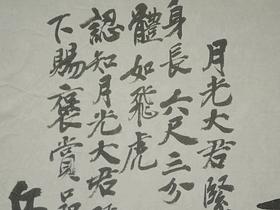 月光大君緊
身長六尺二分
體如飛虎
認知月光大君
下賜褒賞品